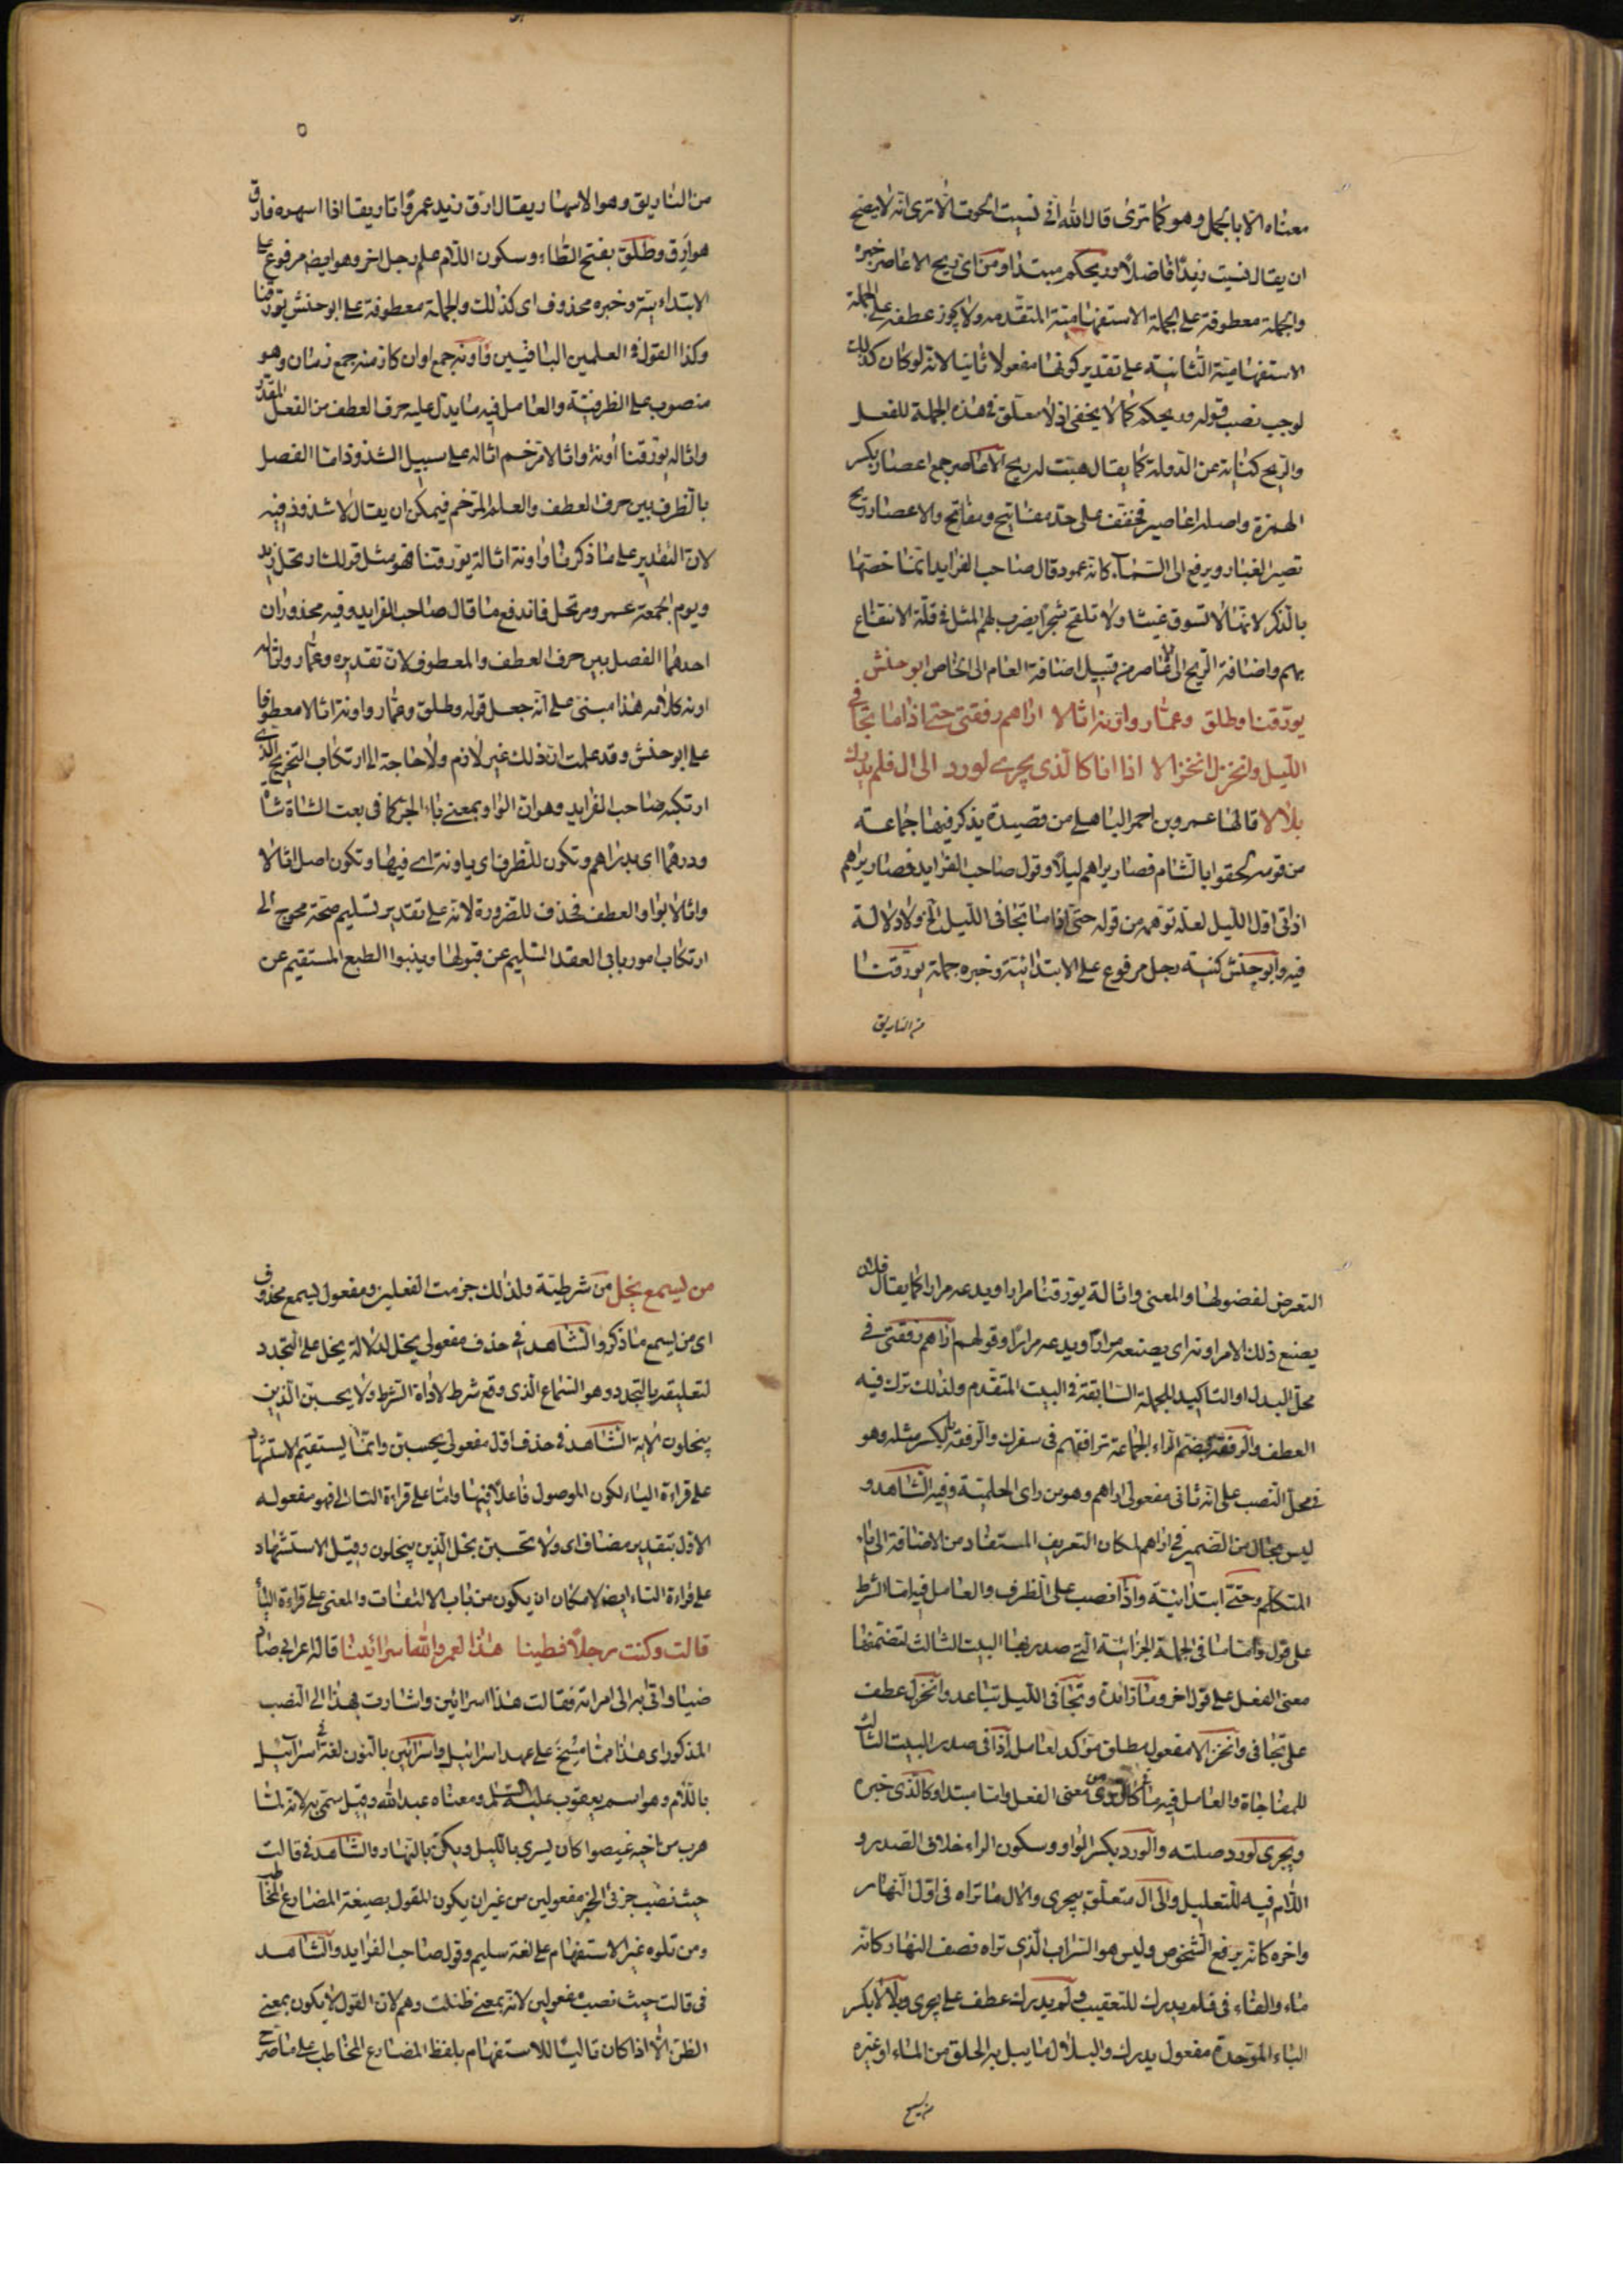 معناه الا بالجمل وهو كما ترى قال الله في نسبت الحق الا ترى انه لا يصح
ان يقال نسيت زيدا فاضلا وريحكم مبتدا ومن اى ريح الاعاصر خبره
والجملة معطوفة على الجملة الاستفهامية المتقدمه ولا يجوز عطفه على الجملة
الاستفهامية الثانية على تقدير كونها مفعولا ثانيا لانه لو كان كذلك
لوجب نصب قوله وريحكم كما لا يخفى اذ لا معلق فى هذه الجملة للفعل
والريح كناية عن الدولة كما يقال هبت له ريح الاعاصر جمع اعصار بكسر
الهمزة واصله اعاصير فخفف على حد مفاتيح ومفاتح والاعصار ريح
تصير الغبار ويرفع الى السماء كانه عمود قال صاحب الفرايد انما خصها
بالذكر لانها لا تسوق غيثا ولا تلقح شجرا يضرب لهم المثل فى قلة الانتفاع
بهم واضافة الريح الى الاعاصر من قبيل اضافة العام الى الخاص ابو حنش
يورقنا وطلق وعمار واونة اثالا اراهم رفقتى حتى اذا ما تجافى
الليل وانخزل انخزالا اذا انا كالذى يجرى لورد الى ال فلم يدرك
بلالا قالها عمرو بن احمر الباهلى من قصيدة يذكر فيها جماعة
من قومه لحقوا بالشام فصار يراهم ليلا وقول صاحب الفرايد فصار يراهم
اذا اتى اول الليل لعله توهمه من قوله حتى اذا ما تجافى الليل الخ ولا دلالة
فيه وابو حنش كنية رجل مرفوع على الابتدائية وخبره جملة يورقنا
من التاريق
من التاريق وهو الاسهار يقال ارق زيد عمروا تاريقا اذا اسهره فارق
هو ارق وطلق بفتح الطاء وسكون اللام علم رجل اخر وهو ايضا مرفوع على
الابتدائية وخبره محذوف اى كذلك والجملة معطوفة على ابو حنش يورقنا
وكذا القول فى العلمين الباقيين واونه جمع اوان كازمنه جمع زمان وهو
منصوب على الظرفية والعامل فيه ما يدل عليه حرف العطف من الفعل المقدر
واثاله يورقنا اونة واثالا مرخم اثاله على سبيل الشذوذ اما الفصل
بالظرف بين حرف العطف والعلم المرخم فيمكن ان يقال لا شذوذ فيه
لان التقدير على ما ذكرنا واونة اثالة يورقنا فهو مثل قولك سار رحل زيد
ويوم الجمعة عمر ومرتحل فاندفع ما قال صاحب الفرايد وفيه محذوران
احدهما الفصل بين حرف العطف والمعطوف لان تقديره وعمار واثاله
اونه كلامه هذا مبنى على انه جعل قوله وطلق وعمار واونة اثالا معطوفا
على ابو حنش وقد علمت ان ذلك غير لازم ولا حاجة الى ارتكاب التخريج الذى
ارتكبه صاحب الفرايد وهو ان الواو بمعنى باء الجر كما فى بعت الشاة شاة
ودرهما اى بدراهم وتكون للظرف اى باونة اى فيها وتكون اصل اثالا
واثالا بواو العطف فحذف للضرورة لانه على تقدير تسليم صحته محوج الى
ارتكاب امور يابى العقد السليم عن قبولها وينبوا الطبع المستقيم عن
التعرض لفضولها والمعنى واثالة يورقنا مرارا ويدعه مرارا كما يقال فلان
يصنع ذلك الامر اونة اى يصنعه مرارا ويدعه مرارا وقولهم اراهم رفقتى فى
محل البدل او التاكيد للجملة السابقة فى البيت المتقدم ولذلك ترك فيه
العطف والرفقة بضم الراء الجماعة ترافقهم فى سفرك والرفقة بالكسر مثله وهو
فى محل النصب على انه ثانى مفعولى اراهم وهو من راى الحلمية وفيه الشاهد و
ليس بحال من الضمير فى اراهم لمكان التعريف المستفاد من الاضافة الى ياء
المتكلم وحتى ابتدائية واذا نصب على الظرف والعامل فيه اما الشرط
على قول واما ما فى الجملة الجزائية التى صدر بها البيت الثالث لتضمنها
معنى الفعل على قول اخر وما زائدة وتجافى الليل تباعد وانخزل عطف
على تجافى وانخزالا مفعول مطلق مؤكد لعامل اذا فى صدر البيت الثالث
للمفاجاة والعامل فيه ما كالذى من معنى الفعل وانا مبتدا وكالذى خبره
ويجرى لورد صلته والورد بكسر الواو وسكون الراء خلاف الصدر و
اللام فيه للتعليل والى ال متعلق بيجرى والال ما تراه فى اول النهار
واخره كانه يرفع الشخوص وليس هو السراب الذى تراه نصف النهار كانه
ماء والفاء فى فلم يدرك للتعقيب ولم يدرك عطف على يجرى وبلالا بكسر
الباء الموحدة مفعول يدرك والبلال ما يبل به الحلق من الماء او غيره
من يسمع
من يسمع يخل من شرطية ولذلك جزمت الفعلين ومفعول يسمع محذوف
اى من يسمع ما ذكر والشاهد فى حذف مفعولى يخل لدلالة يخل على التجدد
لتعليقه بالتجدد وهو السماع الذى وقع شرط لاداة الشرط ولا يحسبن الذين
يبخلون الاية الشاهد فى حذف اول مفعولى يحسبن وانما يستقيم الاستشهاد
على قراءة الياء لكون الموصول فاعلا فيها واما على قراءة التاء الى فهو مفعوله
الاول بتقدير مضاف اى ولا تحسبن بخل الذين يبخلون وقيل الاستشهاد
على قراءة التاء ايضا لامكان ان يكون من باب الالتفات والمعنى على قراءة الياء
قالت وكنت رجلا فطينا هذا لعمر الله اسرائينا قاله اعرابى صاد
ضبا واتى به الى امراته فقالت هذا اسرائين واشارت بهذا الى الضب
المذكور اى هذا مما مسخ على عهد اسرائيل واسرائين بالنون لغة فى اسرائيل
باللام وهو اسم يعقوب عليه السلم ومعناه عبد الله وقيل سمى به لانه لما
هرب من اخيه عيصوا كان يسرى بالليل ويكمن بالنهار والشاهد فى قالت
حيث نصب جزئى الخبر مفعولين من غير ان يكون للقول بصيغة المضارع المخاطب
ومن تلوه غير الاستفهام على لغة سليم وقول صاحب الفرايد والشاهد
فى قالت حيث نصب مفعولين لانه بمعنى ظننت وهم لان القول لا يكون بمعنى
الظن الا اذا كان تاليا للاستفهام بلفظ المضارع المخاطب على ما صرح